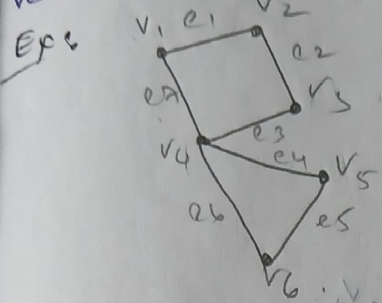 Ex:
V1 e1 V2
e2
e7 V3
e3
V4 e4 V5
e6 e5
V6